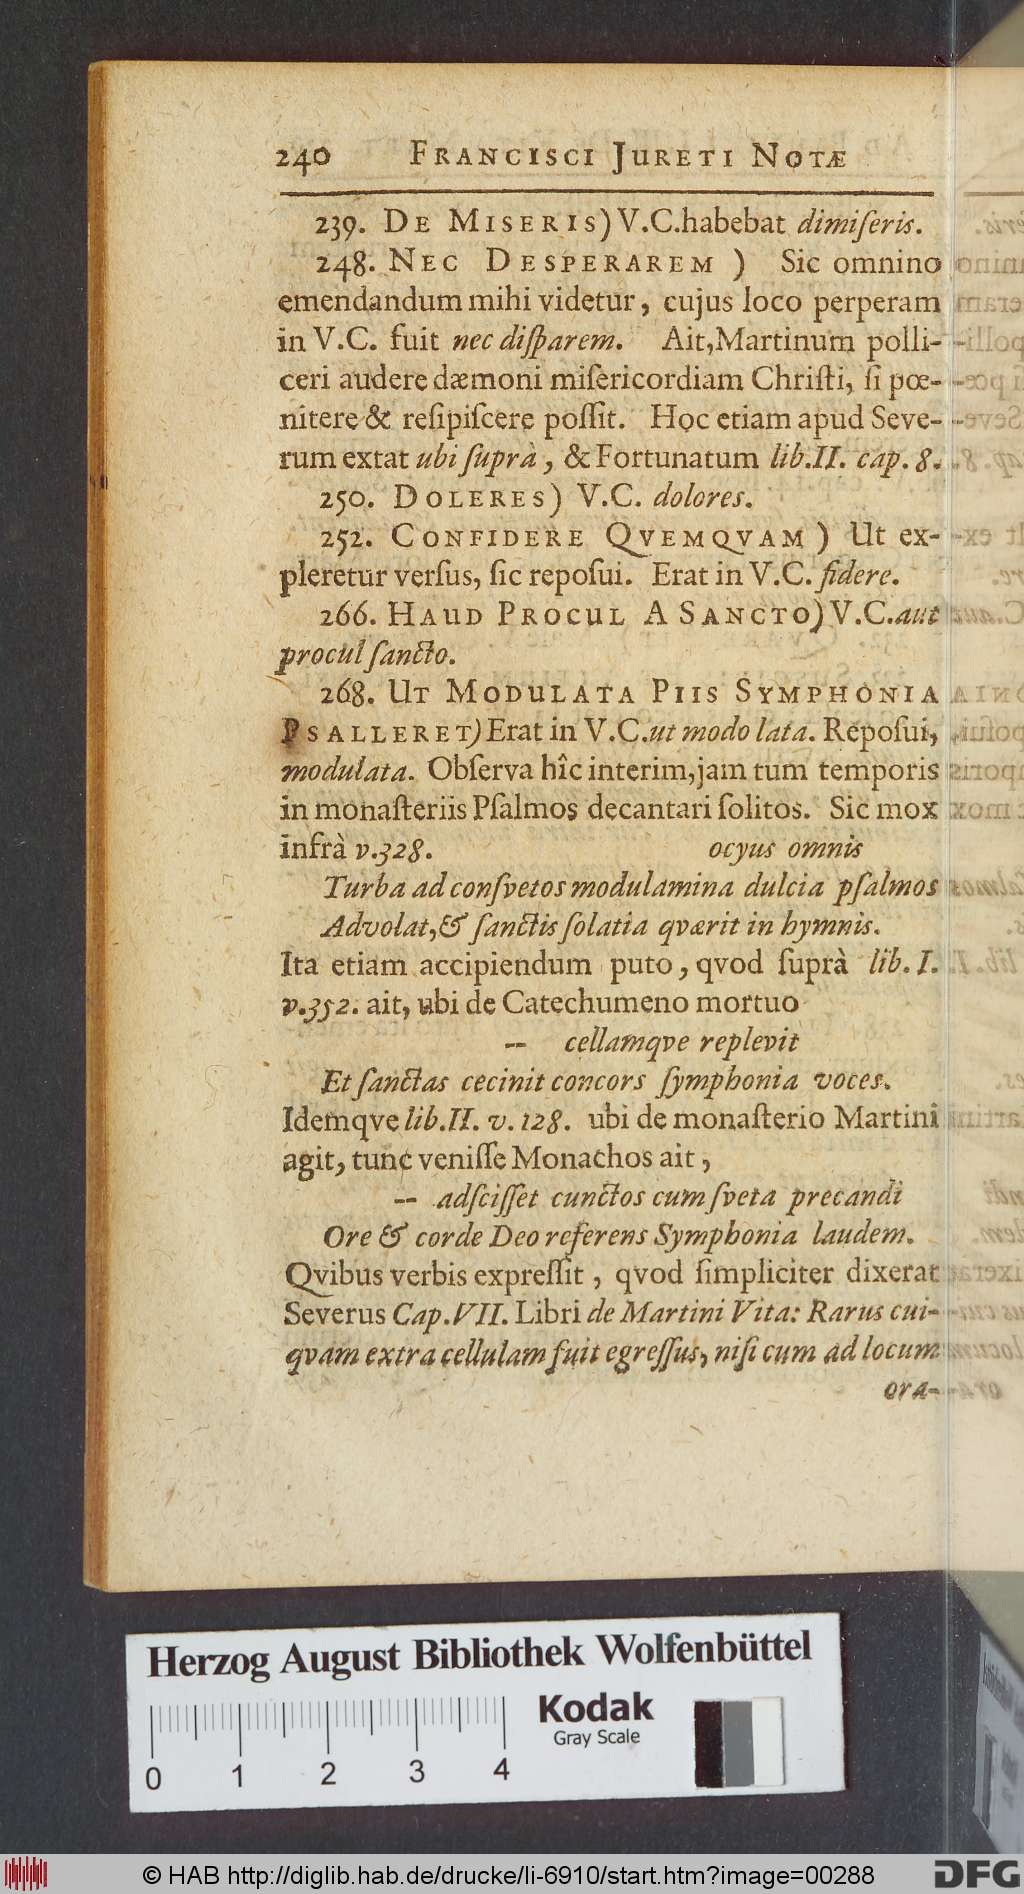 240 FRANCISCI JURETI NOTÆ
239. DE MISERIS) V.C.habebat dimiſeris.
248. NEC DESPERAREM ) Sic omnino
emendandum mihi videtur, cujus loco perperam
in V.C. fuit nec diſparem. Ait, Martinum polli-
ceri audere dæmoni miſericordiam Chriſti, ſi pœ-
nitere & reſipiſcere poſſit. Hoc etiam apud Seve-
rum extat ubi ſuprà, & Fortunatum lib.II. cap. 8.
250. DOLERES) V.C. dolores.
252. CONFIDERE QVEMQVAM ) Ut ex-
pleretur verſus, ſic repoſui. Erat in V.C. fidere.
266. HAUD PROCUL A SANCTO) V.C.aut
procul ſancto.
268. UT MODULATA PIIS SYMPHONIA
PSALLERET) Erat in V.C.ut modo lata. Repoſui,
modulata. Obſerva hîc interim, jam tum temporis
in monaſteriis Pſalmos decantari ſolitos. Sic mox
infrà v.328. ocyus omnis
Turba ad conſvetos modulamina dulcia pſalmos
Advolat, & ſanctis ſolatia qværit in hymnis.
Ita etiam accipiendum puto, qvod ſuprà lib. I.
v.352. ait, ubi de Catechumeno mortuo
-- cellamqve replevit
Et ſanctas cecinit concors ſymphonia voces.
Idemqve lib.II. v. 128. ubi de monaſterio Martini
agit, tunc veniſſe Monachos ait,
-- adſciſſet cunctos cum ſveta precandi
Ore & corde Deo referens Symphonia laudem.
Qvibus verbis expreſſit, qvod ſimpliciter dixerat
Severus Cap.VII. Libri de Martini Vita: Rarus cui-
qvam extra cellulam fuit egreſſus, niſi cum ad locum
ora-
Herzog August Bibliothek Wolfenbüttel
Kodak
Gray Scale
0 1 2 3 4
© HAB http://diglib.hab.de/drucke/li-6910/start.htm?image=00288
DFG